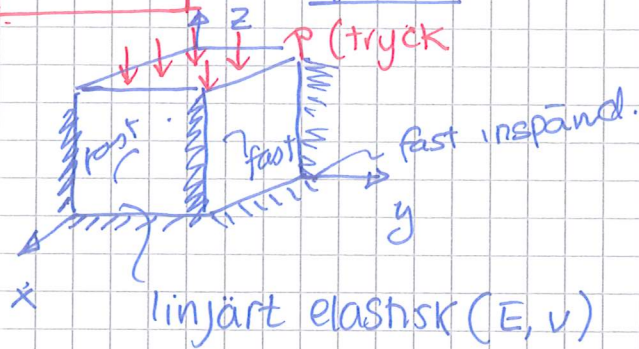 z
P (tryck
fast
fast
fast inspänd.
y
x
linjärt elastisk (E, ν)